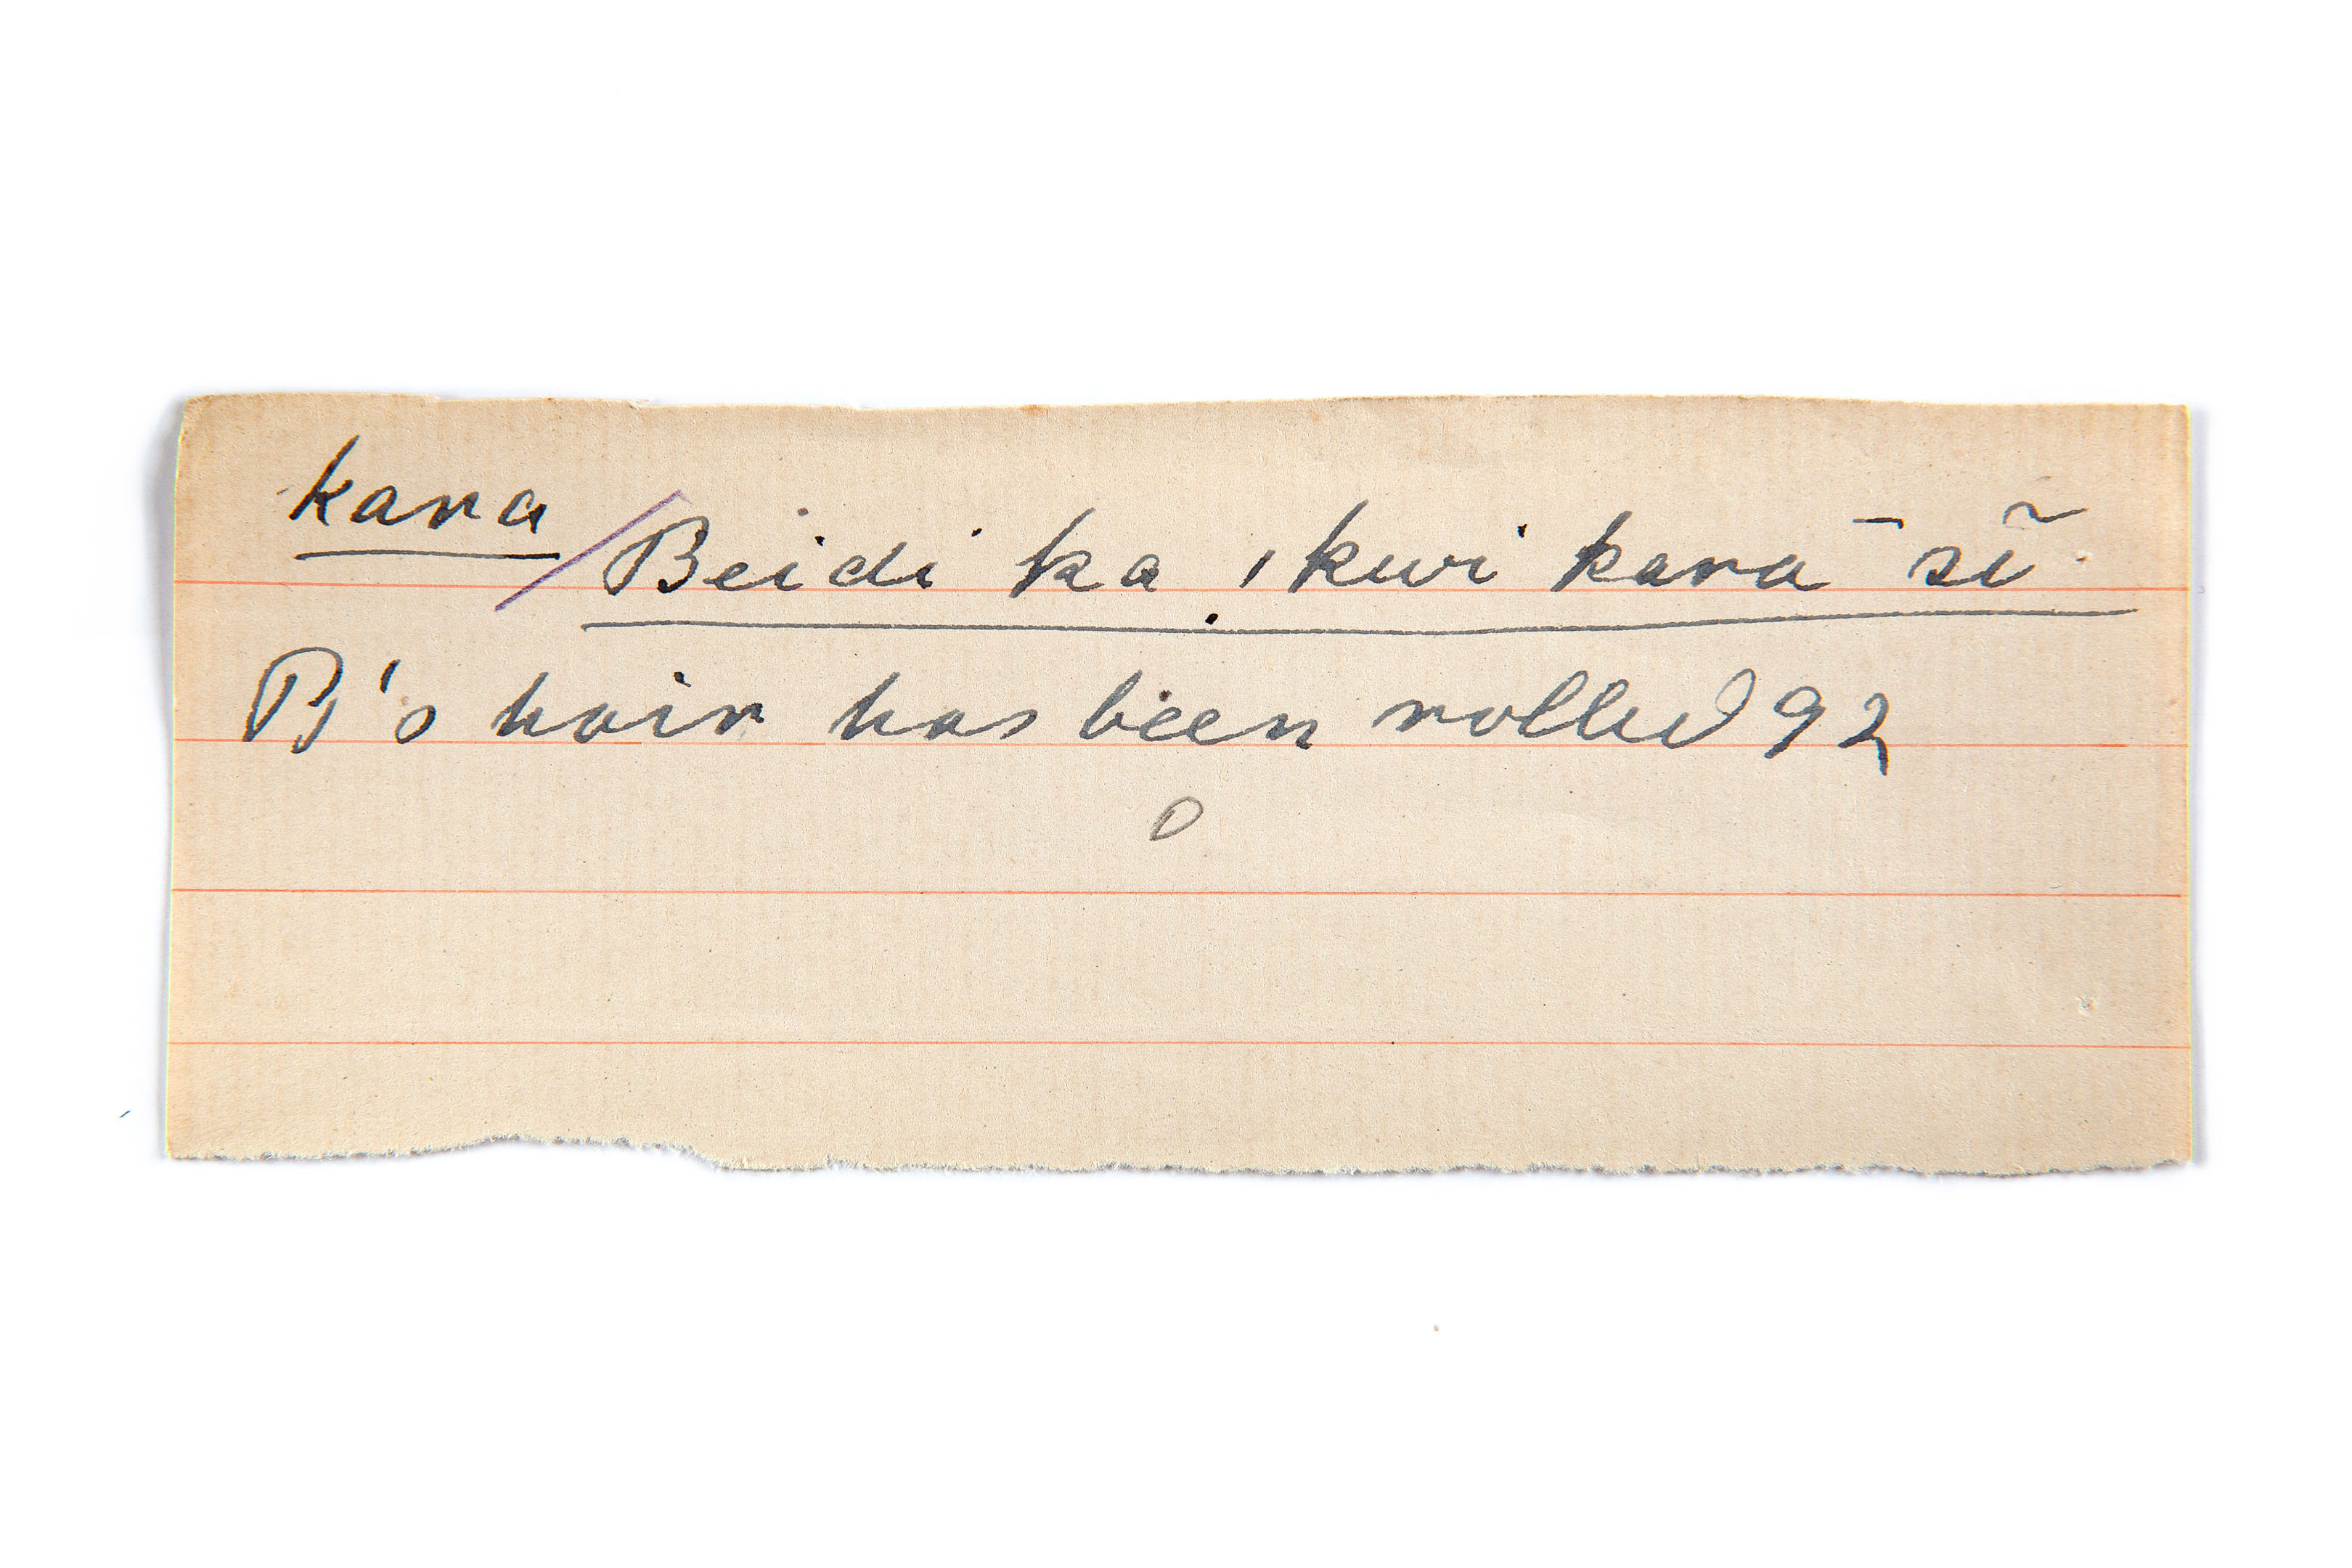 kara / Beidi ka ˌkwi karā sĩ
B's hair has been rolled 92
0